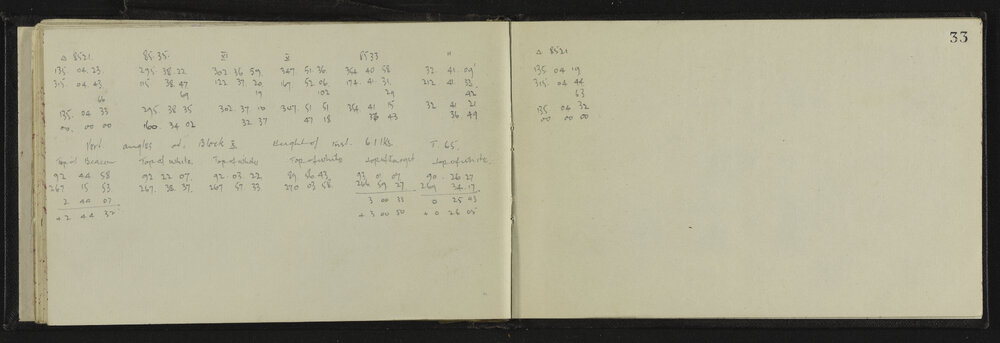 △ 8521 85.35. XI X 8533 "
135 04.23 295.38.22 302.36.59. 347.51.36 354 40 58 32.41.09
315.04.43 115 38.47 122.37.20 167.52.06 174.41.31. 212.41.33
66 69 19 102 29 42
135.04 33 295 38 35 302.37.10 347.51 51 354.41 15 32 41 21
00. 00 00 160.34 02 32 37 18 43 36.49
Vert angles at. Block X Height of inst. 6.1 lks. T. 65.
Top of Beacon Top of white Top of white Top of white Top of target Top of white
92 44 58 92 22 07. 92.03 22 89.56 43. 93 01 07 90.26.27
267 15 53 267.38.37. 267 57 33 270 03 58. 266 59 27 269 34.17
2 44 07 3 00 33 0 25 03
+2 44 32 +3 00 50 +0 26 05
33
△ 8521
135 04 19
315.04 44
63
135 04 32
00 00 00